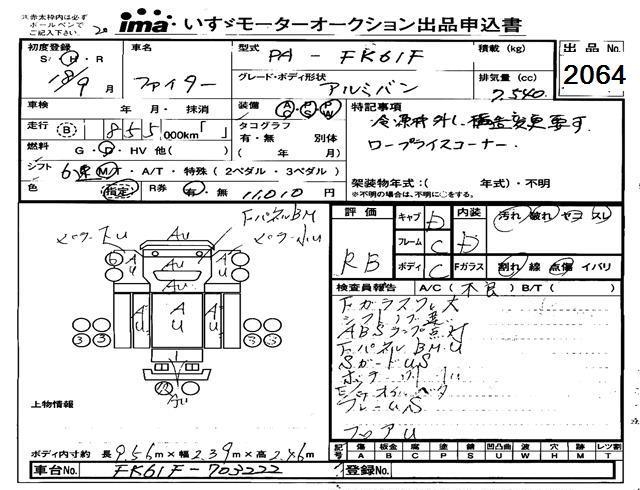 ※赤太枠内は必ず
ボールペンで
ご記入下さい。
ima いすゞモーターオークション出品申込書
初度登録
S・H・R
18/9月
車名
ファイター
型式
PA - FK61F
グレード・ボディ形状
アルミバン
積載(kg)
排気量(cc)
7.540
出品No.
2064
車検 年・月・抹消
走行 B 855,000km「 」
燃料 G・D・HV 他( )
シフト 6速 M/T・A/T・特殊(2ペダル・3ペダル)
色 指定 R券 有・無 11,010円
装備 AC・PS・PW
タコグラフ
有・無 別体
( 年 月)
特記事項
冷凍機外し、構造変更要す
ロープライスコーナー。
架装物年式:( 年式)・不明
※不明の場合は、不明に○をする。
評価
RB
キャブ D
フレーム C
ボディ C
内装 D 汚れ 破れ セコ スレ
Fガラス 割れ 線 点傷 イバリ
検査員報告 A/C(不良)B/T( )
Fガラスワレ大
ABSランプ点灯
FパネルBM.U
SガードUS
フレームS
フロアU
FパネルBM
Au
Au
AU
AU
AU
AU
AU
Au
6
3 3
3 3
上物情報
ボディ内寸約 長9.56m×幅2.39m×高2.46m
記号 傷 板金 腐 塗 錆 凹凸曲 波 穴 跡 レツ割
A B C P S U W H M T
車台No. FK61F-703222
登録No.